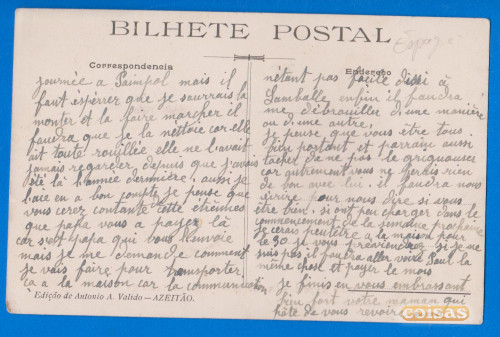 BILHETE POSTAL
Correspondencia
journée a Paimpol mais il
faut espérrer que je saurrais la
monter et la faire marcher il
faudra que je la nettoie car elle
ait toute rouillée elle ne l'avait
jamais regarder depuis que j'avais
été là l'année dernière aussi je
l'aie eu a bon compte je pense que
vous cerez contante cette étreintes
que papa vous a payer là
car s'est papa qui vous l'envoie
mais je me demande comment
je vais faire pour transporter
ça a la maison car la communication
Edição de Antonio A. Valido — AZEITÃO.
Endereço
n'étant pas facile d'issi à
Lamballe enfin il faudra
me débrouiller d'une manière
ou d'une autre,
je pense que vous ète tous
bien portant et parrain aussi
tachez de ne pas le
car autrement vous ne serais rien
de bon avec lui. il faudra nous
écrire pour nous dire si vous
ète bien. si ont peu charger dans le
commencement de la semaine prochaine
je cerai peutètre a la maison pour
le 30. je vous préviendrez si je ne
suis pas il faudra aller voir Paul la
même chose et payer le mois
je finis en vous embrassant
bien fort votre maman qui
hâte de vous revoir
coisas